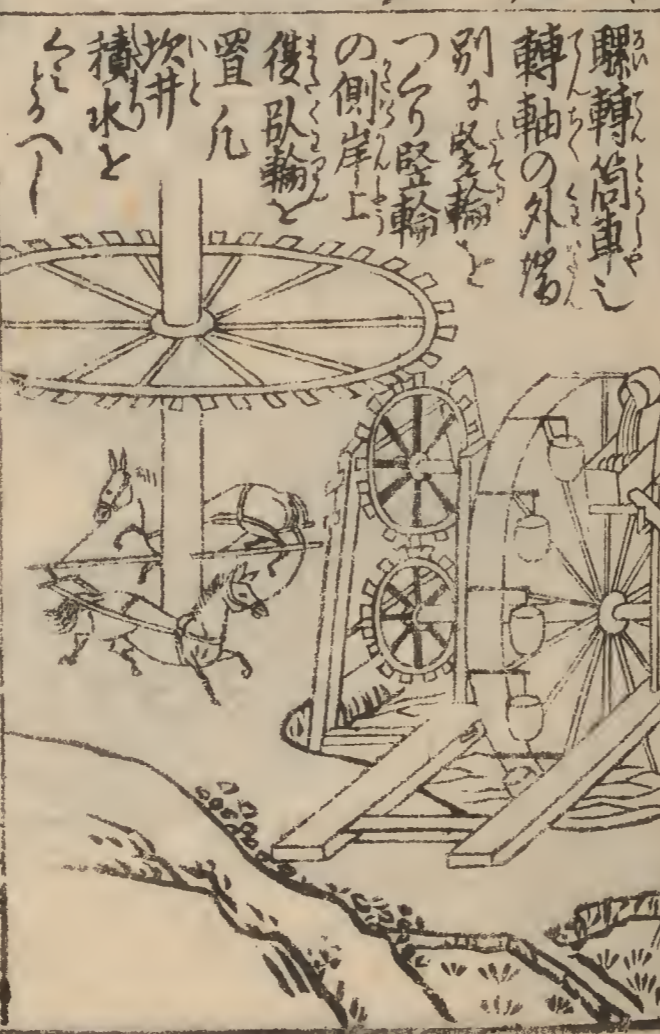 騾轉筒車之
轉軸の外端
別に竪輪を
つくり竪輪
の側岸上
復臥輪を
置凡
坎井
積水を
くみとるへし